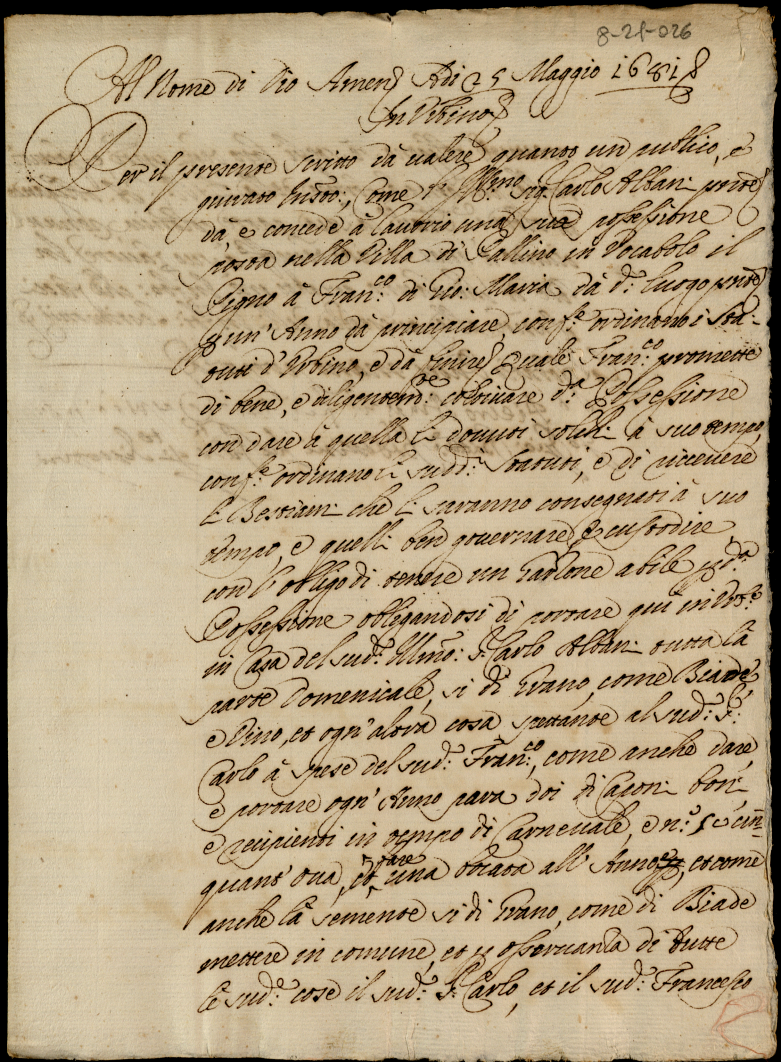 8-21-026
Al Nome di Dio Amen Adi 25 Maggio 1681
In Urbino
Per il presente scritto dà ualere quanto un publico, e
giurato Instro:, Come l' Illmo: sig: Carlo Alban: pnte
dà e concede à lauorio una sua possessione
posta nella Villa di Pallino in Vocabolo il
Cigno à Fran:co di Gio: Maria dà d:o luogo pnte
p un' Anno dà principiare conf:e ordinano i Sta-
tuti d'Urbino, e dà finire, quale Fran:co promette
di bene, e diligentem:te coltiuare d:a Possessione
con dare à quella li douuti soliti à suo tempo,
conf:e ordinano li sudd:i Statuti, e di riceuere
li Bestiami che li saranno consegnati à suo
tempo, e quelli ben gouernare, e custodire,
con l'obligo di tenere un Garzone abile p d:a
Possessione obligandosi di portare qui in Urb:o
in Casa del sud:o Illmo: S: Carlo Alban: tutta la
parte Domenicale, sì di Grano, come Biade,
e Vino, et ogn'altra cosa spettante al sud:o S:
Carlo à spese del sud:o Fran:co, come anche dare,
e portare ogn'Anno para doi di Caponi boni
e recipienti in tempo di Carneuale, e n:o 50 cin-
quant' oua, et fare una opera all' Anno et come
anche la semente sì di Grano, come di Biade
mettere in comune, et p osseruanza di tutte
le sud:e cose il sud:o S: Carlo, et il sud:o Francesco